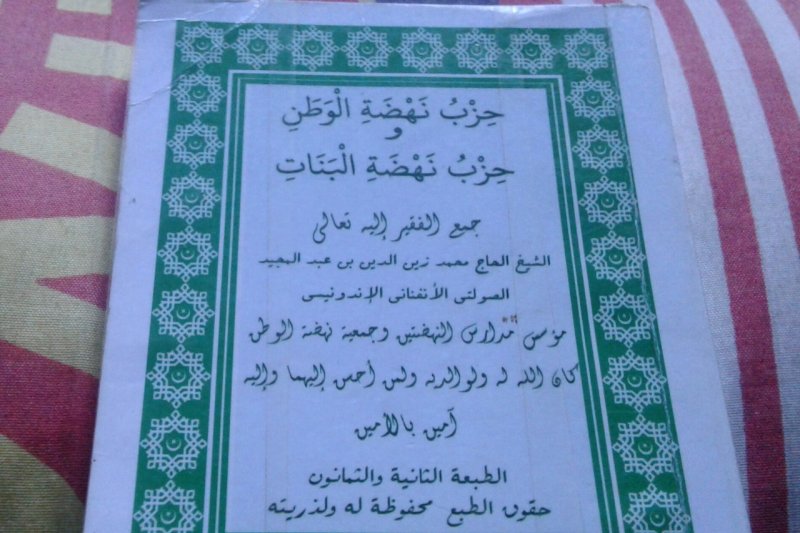 حِزْبُ نَهْضَةِ الْوَطَنِ
و
حِزْبُ نَهْضَةِ الْبَنَاتِ
جمع الفقير إليه تعالى
الشيخ الحاج محمد زين الدين بن عبد المجيد
الصولتى الأنفنانى الإندونيسى
مؤسس مدارس النهضتين وجمعية نهضة الوطن
كان الله له ولوالديه ولمن أحسن إليهما وإليه
آمين بالأمين
الطبعة الثانية والثمانون
حقوق الطبع محفوظة له ولذريته